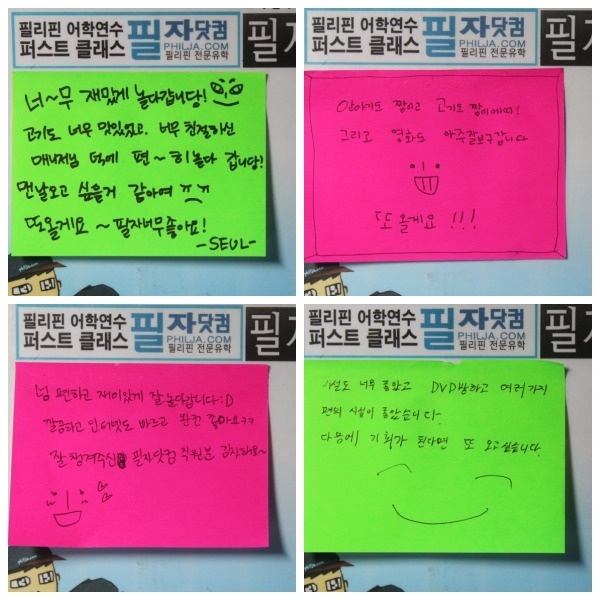 필리핀 어학연수
퍼스트 클래스
필자닷컴
PHILJA.COM
필리핀 전문유학
필자
너~무 재밌게 놀다갑니당!
고기도 너무 맛있었고. 너무 친절하신
매니저님 덕에 편~히놀다 갑니당!
맨날오고 싶을거 같아여 ㅠㄱ
또올게요~필자너무좋아요!
-SEUL-
필리핀 어학연수
퍼스트 클래스
필자닷컴
PHILJA.COM
필리핀 전문유학
필
짱이고 고기도 짱이에여!
그리고 영화도 아주잘보구갑니다
또 올게요 !!!
philja.com
필리핀 어학연수
퍼스트 클래스
필자닷컴
PHILJA.COM
필리핀 전문유학
필
넘 편하고 재미있게 잘 놀다갑니다:D
깔끔하고 인터넷도 빠르고 완전 좋아요ㅋㅋ
잘 챙겨주신 필자닷컴 직원분 감사해요~
필리핀 어학연수
퍼스트 클래스
필자닷컴
PHILJA.COM
필리핀 전문유학
필
시설도 너무 좋았고 DVD방하고 여러가지
편의 시설이 좋았습니다.
다음에 기회가 된다면 또 오고싶습니다.
philja.com